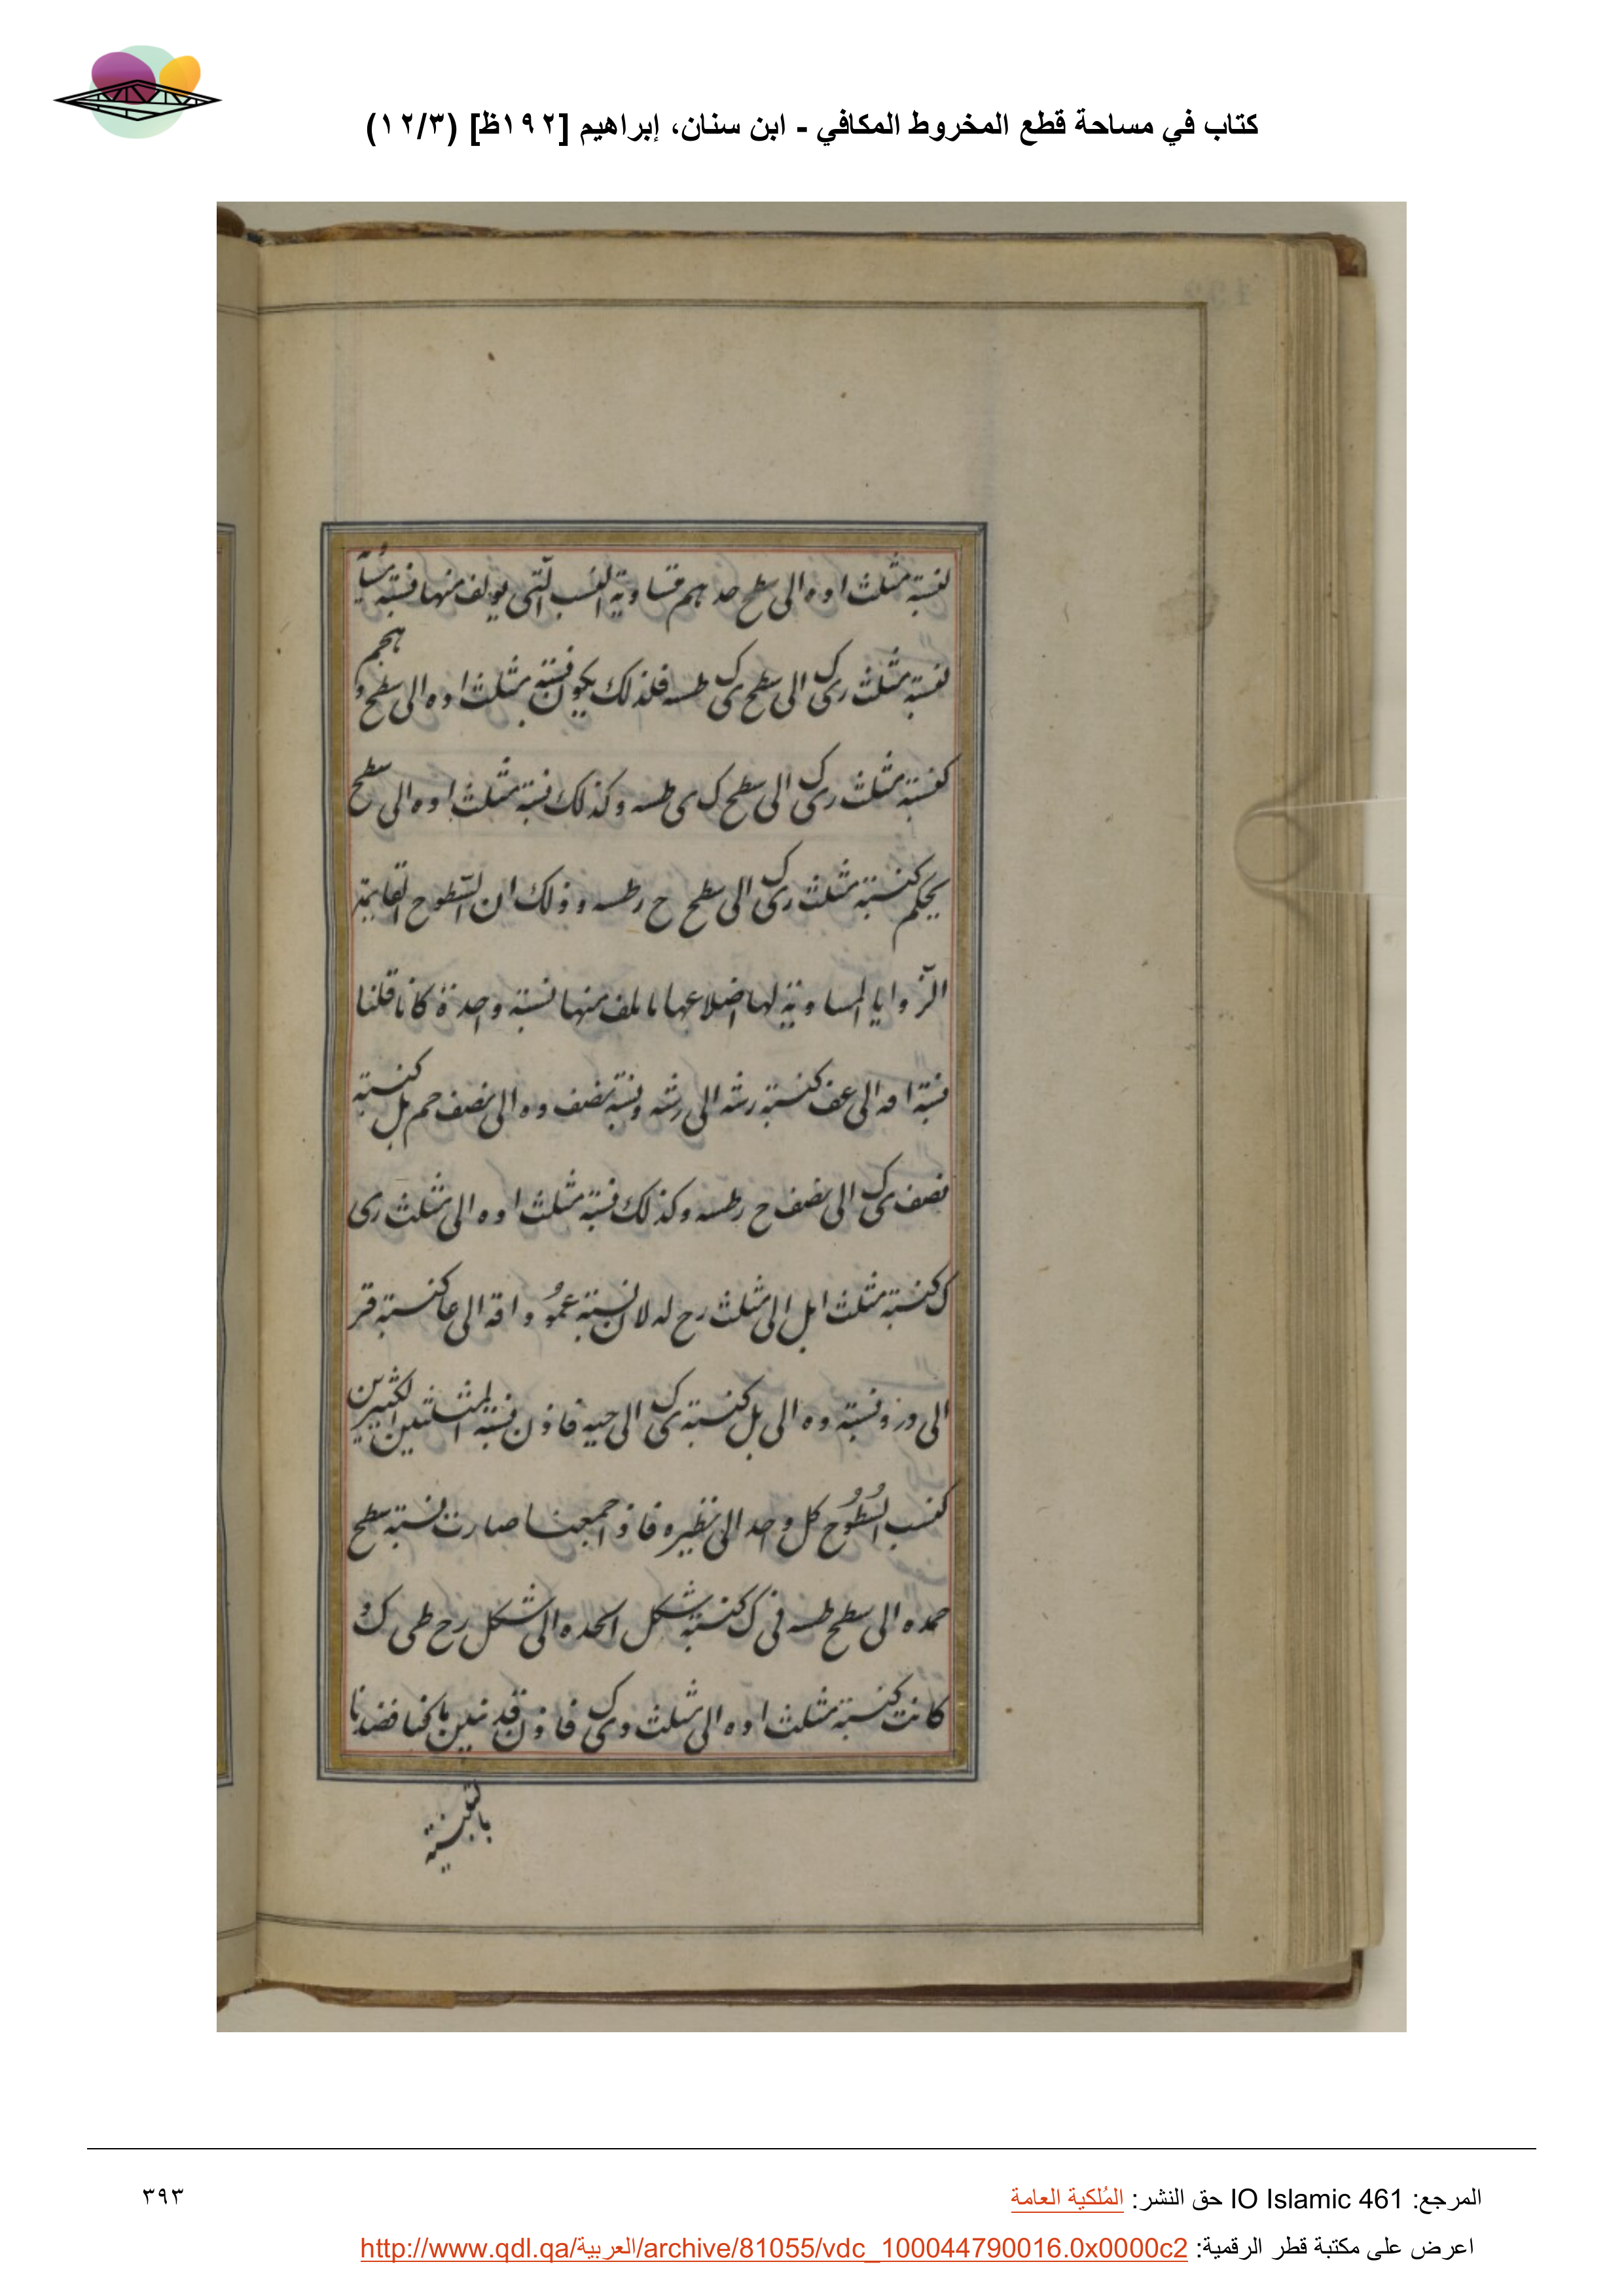 كتاب في مساحة قطع المخروط المكافي - ابن سنان، إبراهيم [١٩٢ظ] (١٢/٣)
نسبة مثلث اوه الى سطح حد هم متساوية النسب التى يولف منها فنسبة
نسبة مثلث رى ك الى سطح ى ك طسه فلذلك يكون نسبة مثلث اوه الى سطح و هحم
كنسبة مثلث رى ك الى سطح ك ى طسه وكذلك نسبة مثلث اوه الى سطح
كنسبة مثلث رى ك الى سطح ح رطسه وذلك ان السطوح القايمة
الزوايا المساوية لها اضلاعها منها نسبة واحدة كانا قلنا
فنسبة اقه الى عف كنسبة رشه الى رشه ونسبة نصف وه الى نصف حم بل كنسبة
نصف ى ك الى نصف ح رطسه وكذلك نسبة مثلث اوه الى مثلث رى
ك كنسبة مثلث ابل الى مثلث رح له لان نسبة عمود اقه الى عا كنسبة قر
الى ور ونسبة وه الى بل كنسبة ى ك الى حيه فاذن نسبة المثلثين
كنسب السطوح كل واحد الى نظيره فاذا جمعنا صارت نسبة سطح
حمده الى سطح طسه فى ك كنسبة شكل الحده الى شكل رح طى ك و
كانت كنسبة مثلث اوه الى مثلث وى ك فاذن قد تبين ما قصدنا
٣٩٣
المرجع: IO Islamic 461 حق النشر: المُلكية العامة
اعرض على مكتبة قطر الرقمية: http://www.qdl.qa/العربية/archive/81055/vdc_100044790016.0x0000c2